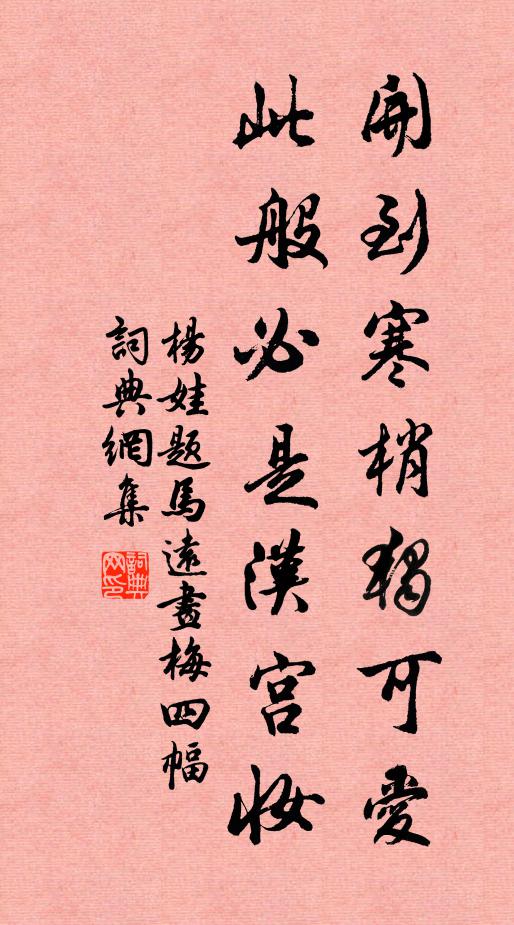 開到寒梢獨可愛
此般必是漢宮妝
楊娃題馬遠畫梅四幅
詞典網集
詞典网印